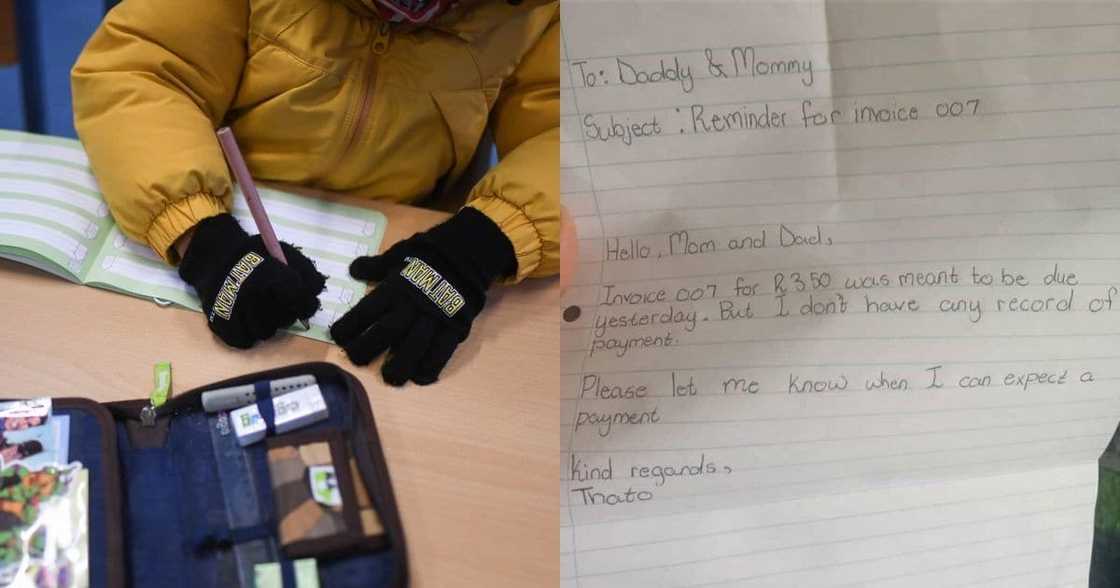 BATMAN
BATMAN
To: Daddy & Mommy
Subject: Reminder for invoice 007
Hello, Mom and Dad,
Invoice 007 for R350 was meant to be due
yesterday. But I don't have any record of
payment.
Please let me know when I can expect a
payment
kind regards,
Thato